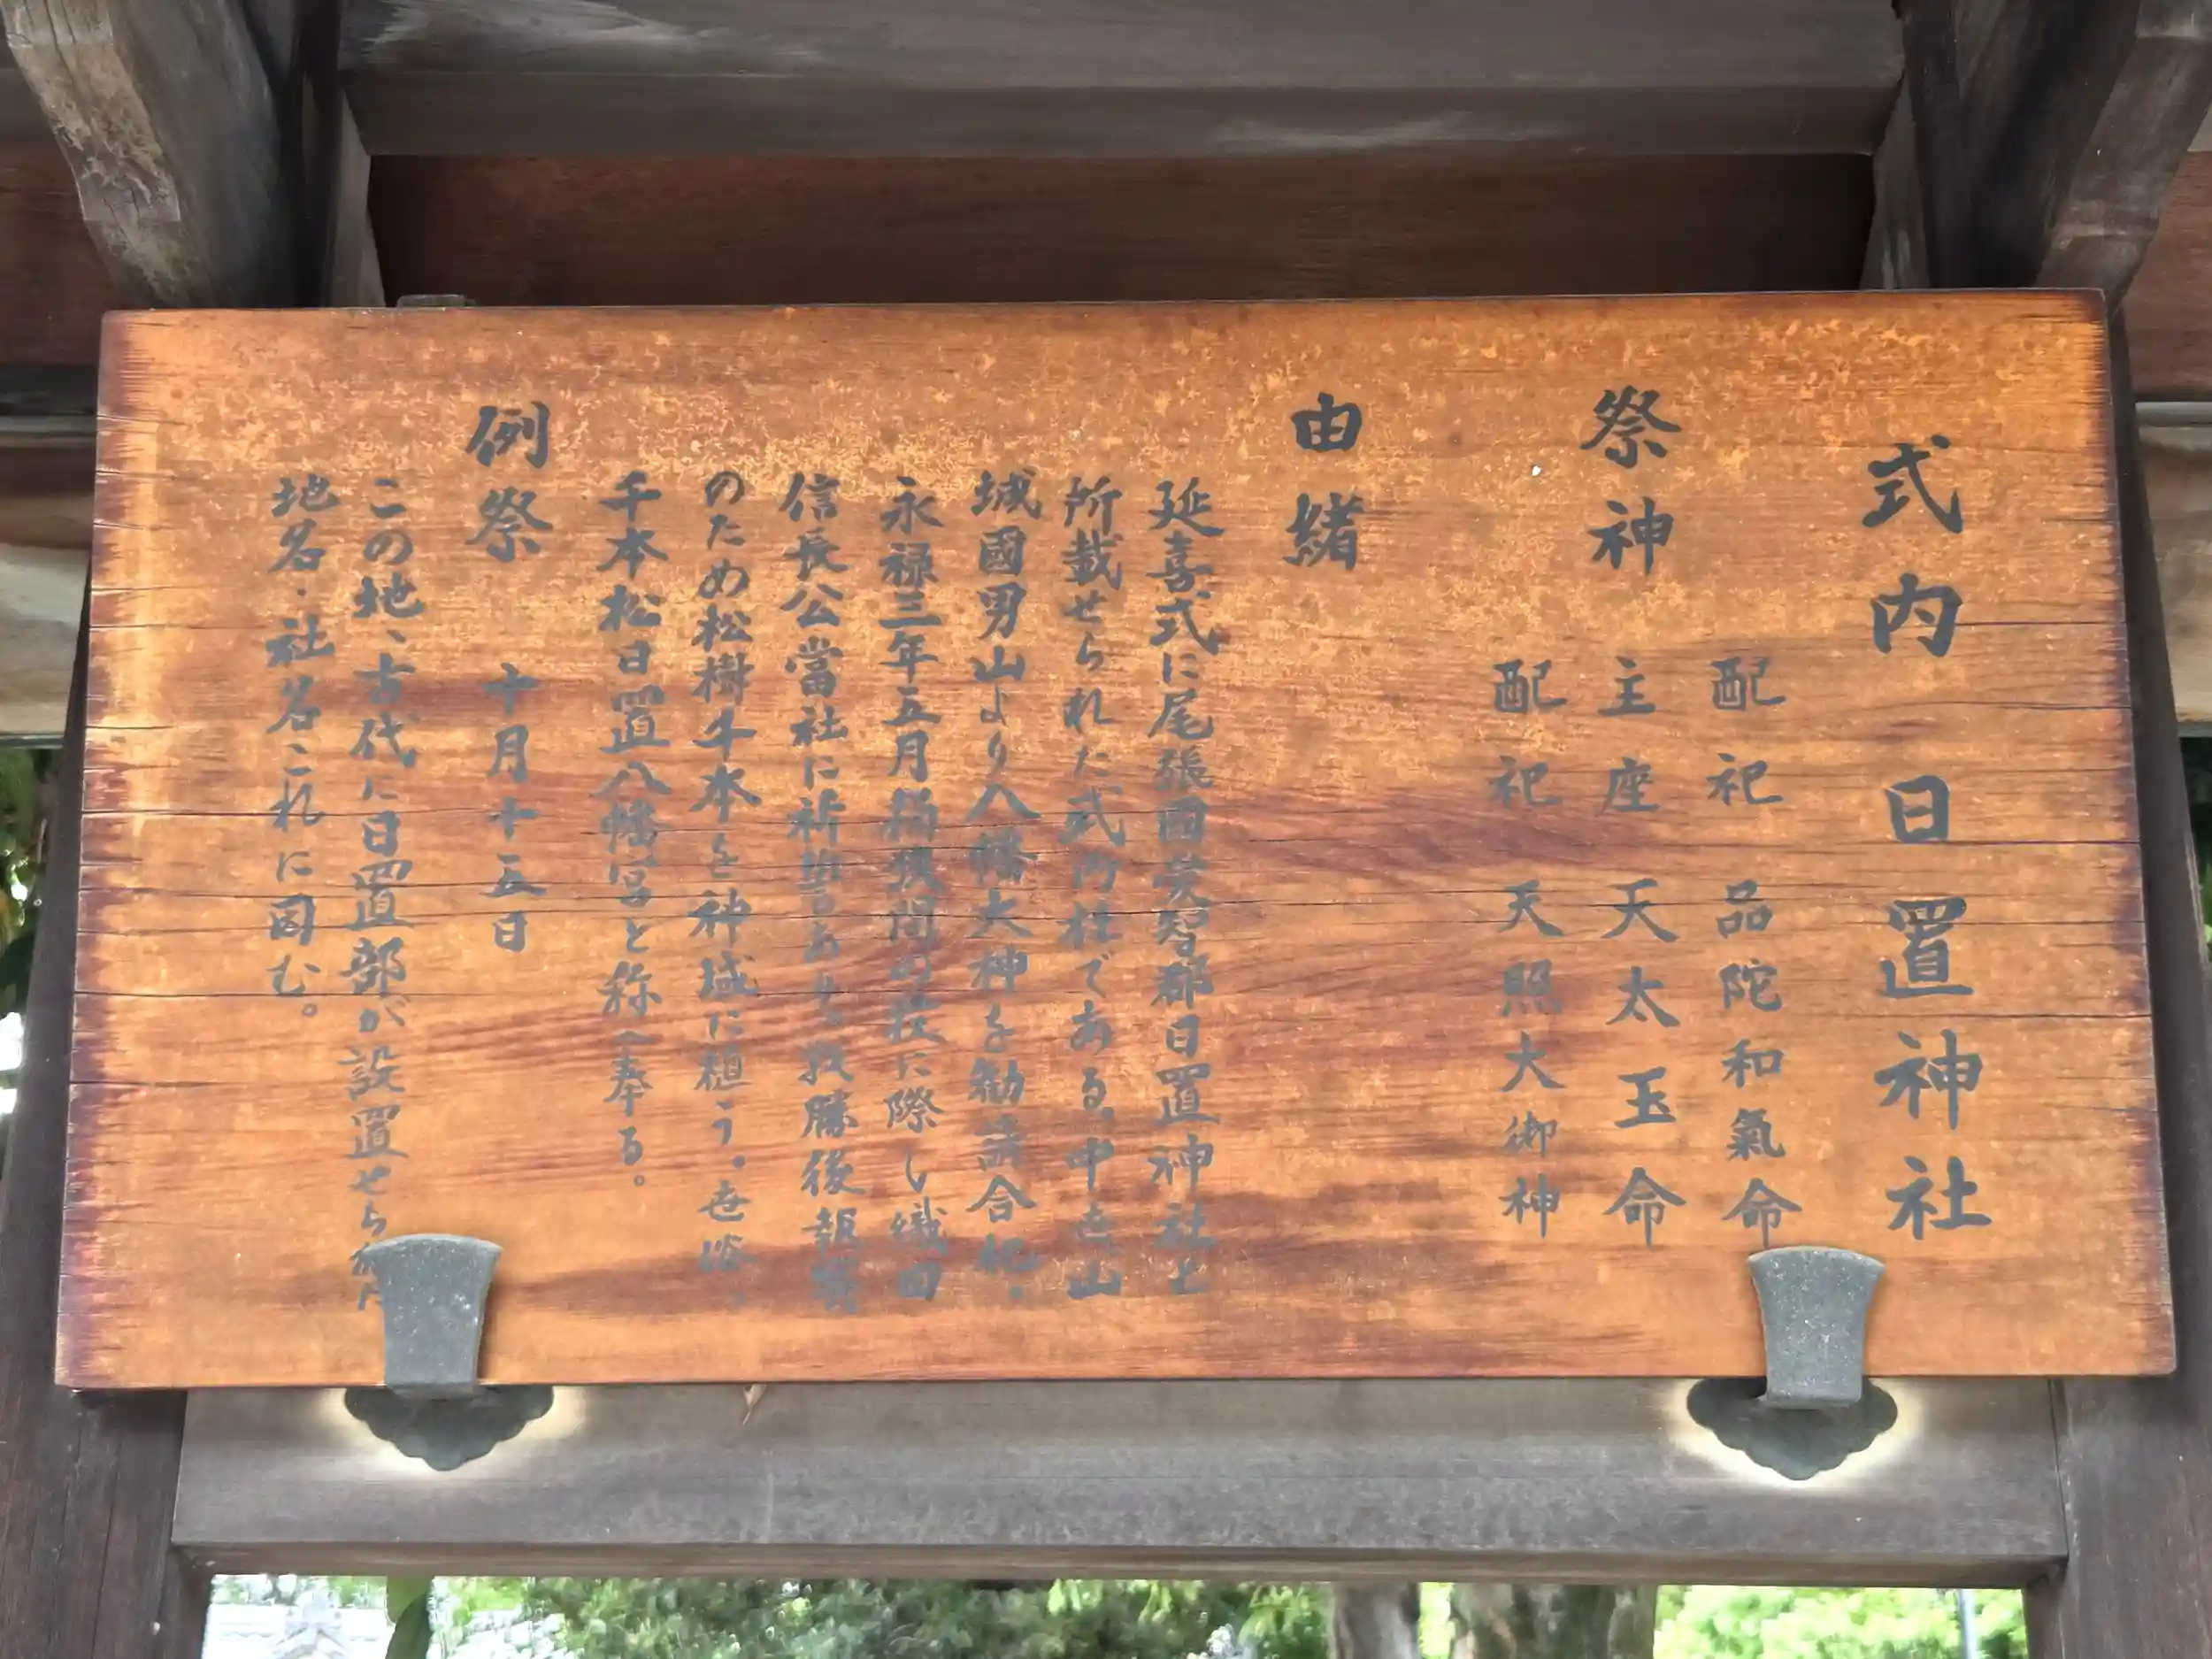 式内 日置神社
祭神
配祀 品陀和氣命
主座 天太玉命
配祀 天照大御神
由緒
延喜式に尾張國愛智郡日置神社と
所載せられた式内社である。中世山
城國男山より八幡大神を勧請合祀。
永禄三年五月桶狭間の役に際し織田
信長公當社に祈誓あり。戦勝後報賽
のため松樹千本を神域に植う。世俗、
千本松日置八幡宮と称へ奉る。
例祭 十月十五日
この地、古代に日置部が設置せられ
地名・社名これに因む。